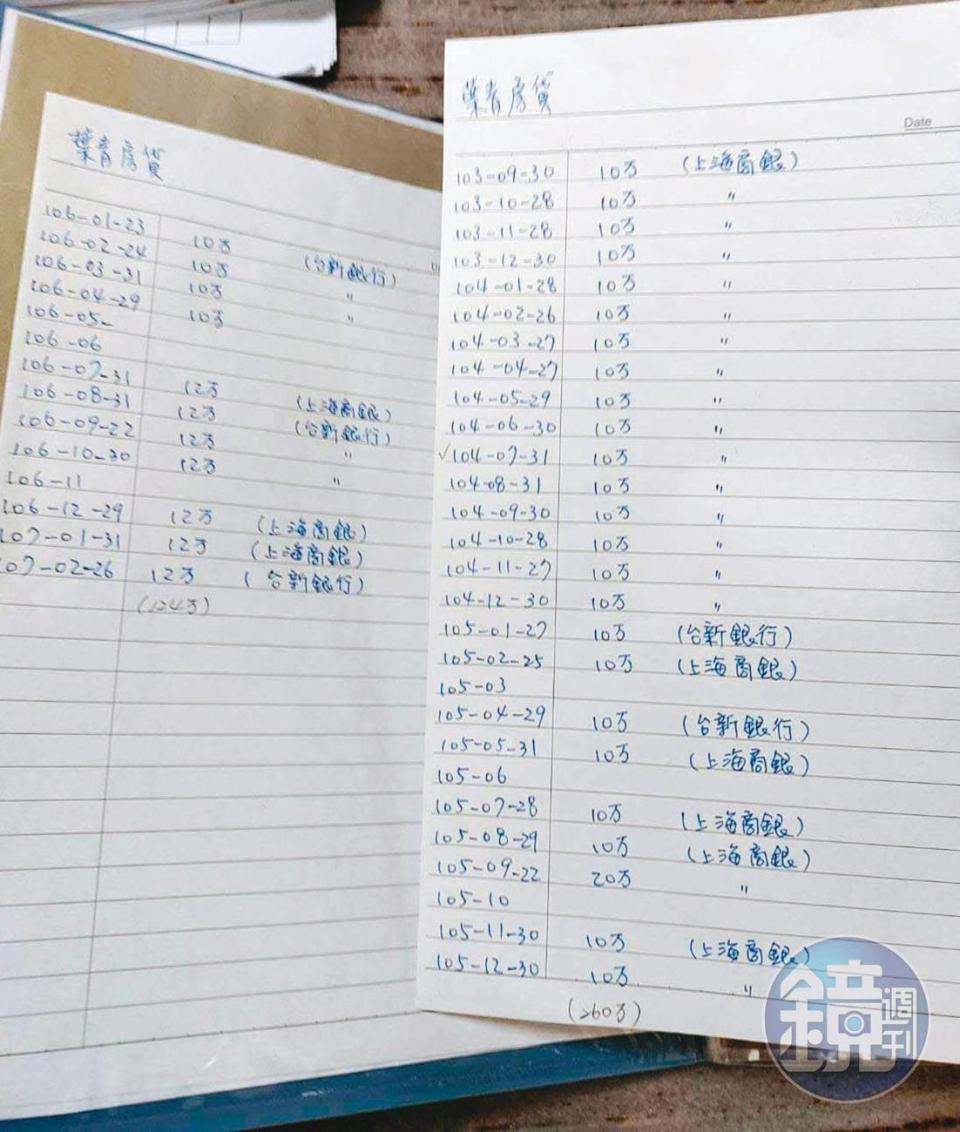 葉青房貸
106-01-23 10万 (台新銀行)
106-02-24 10万 〃
106-03-31 10万 〃
106-04-29 10万
106-05-
106-06
106-07-31 12万 (上海商銀)
106-08-31 12万 (台新銀行)
106-09-22 12万 〃
106-10-30 12万 〃
106-11
106-12-29 12万 (上海商銀)
107-01-31 12万 (上海商銀)
107-02-26 12万 (台新銀行)
(124万)
葉青房貸
Date
103-09-30 10万 (上海商銀)
103-10-28 10万 〃
103-11-28 10万 〃
103-12-30 10万 〃
104-01-28 10万 〃
104-02-26 10万 〃
104-03-27 10万 〃
104-04-27 10万 〃
104-05-29 10万 〃
104-06-30 10万 〃
✓104-07-31 10万 〃
104-08-31 10万 〃
104-09-30 10万 〃
104-10-28 10万 〃
104-11-27 10万 〃
104-12-30 10万 〃
105-01-27 10万 (台新銀行)
105-02-25 10万 (上海商銀)
105-03
105-04-29 10万 (台新銀行)
105-05-31 10万 (上海商銀)
105-06
105-07-28 10万 (上海商銀)
105-08-29 10万 (上海商銀)
105-09-22 20万 〃
105-10
105-11-30 10万 (上海商銀)
105-12-30 10万 〃
(260万)
鏡週刊